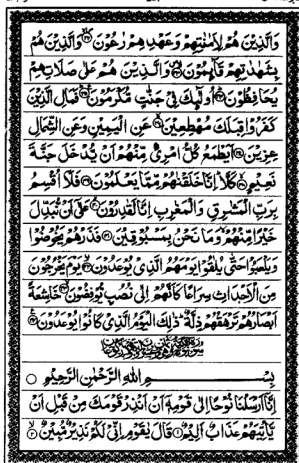 وَالَّذِيْنَ هُمْ لِاَمٰنٰتِهِمْ وَعَهْدِهِمْ رٰعُوْنَ ۝۳۲ وَالَّذِيْنَ هُمْ
بِشَهٰدٰتِهِمْ قَآئِمُوْنَ ۝۳۳ وَالَّذِيْنَ هُمْ عَلٰى صَلَاتِهِمْ
يُحَافِظُوْنَ ۝۳۴ اُولٰٓئِكَ فِيْ جَنّٰتٍ مُّكْرَمُوْنَ ۝۳۵ فَمَالِ الَّذِيْنَ
كَفَرُوْا قِبَلَكَ مُهْطِعِيْنَ ۝۳۶ عَنِ الْيَمِيْنِ وَعَنِ الشِّمَالِ
عِزِيْنَ ۝۳۷ اَيَطْمَعُ كُلُّ امْرِئٍ مِّنْهُمْ اَنْ يُّدْخَلَ جَنَّةَ
نَعِيْمٍ ۝۳۸ كَلَّا اِنَّا خَلَقْنٰهُمْ مِّمَّا يَعْلَمُوْنَ ۝۳۹ فَلَآ اُقْسِمُ
بِرَبِّ الْمَشٰرِقِ وَالْمَغٰرِبِ اِنَّا لَقٰدِرُوْنَ ۝۴۰ عَلٰٓى اَنْ نُّبَدِّلَ
خَيْرًا مِّنْهُمْ وَمَا نَحْنُ بِمَسْبُوْقِيْنَ ۝۴۱ فَذَرْهُمْ يَخُوْضُوْا
وَيَلْعَبُوْا حَتّٰى يُلٰقُوْا يَوْمَهُمُ الَّذِيْ يُوْعَدُوْنَ ۝۴۲ يَوْمَ يَخْرُجُوْنَ
مِنَ الْاَجْدَاثِ سِرَاعًا كَاَنَّهُمْ اِلٰى نُصُبٍ يُّوْفِضُوْنَ ۝۴۳ خَاشِعَةً
اَبْصَارُهُمْ تَرْهَقُهُمْ ذِلَّةٌ ذٰلِكَ الْيَوْمُ الَّذِيْ كَانُوْا يُوْعَدُوْنَ ۝۴۴
بِسْمِ اللّٰهِ الرَّحْمٰنِ الرَّحِيْمِ
اِنَّآ اَرْسَلْنَا نُوْحًا اِلٰى قَوْمِهٖٓ اَنْ اَنْذِرْ قَوْمَكَ مِنْ قَبْلِ اَنْ
يَّاْتِيَهُمْ عَذَابٌ اَلِيْمٌ ۝۱ قَالَ يٰقَوْمِ اِنِّيْ لَكُمْ نَذِيْرٌ مُّبِيْنٌ ۝۲